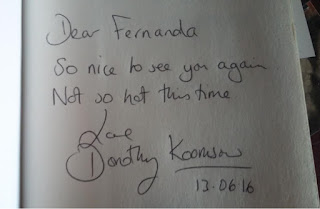 Dear Fernanda
So nice to see you again
Not so hot this time
Love
Dorothy Koomson
13.06 16